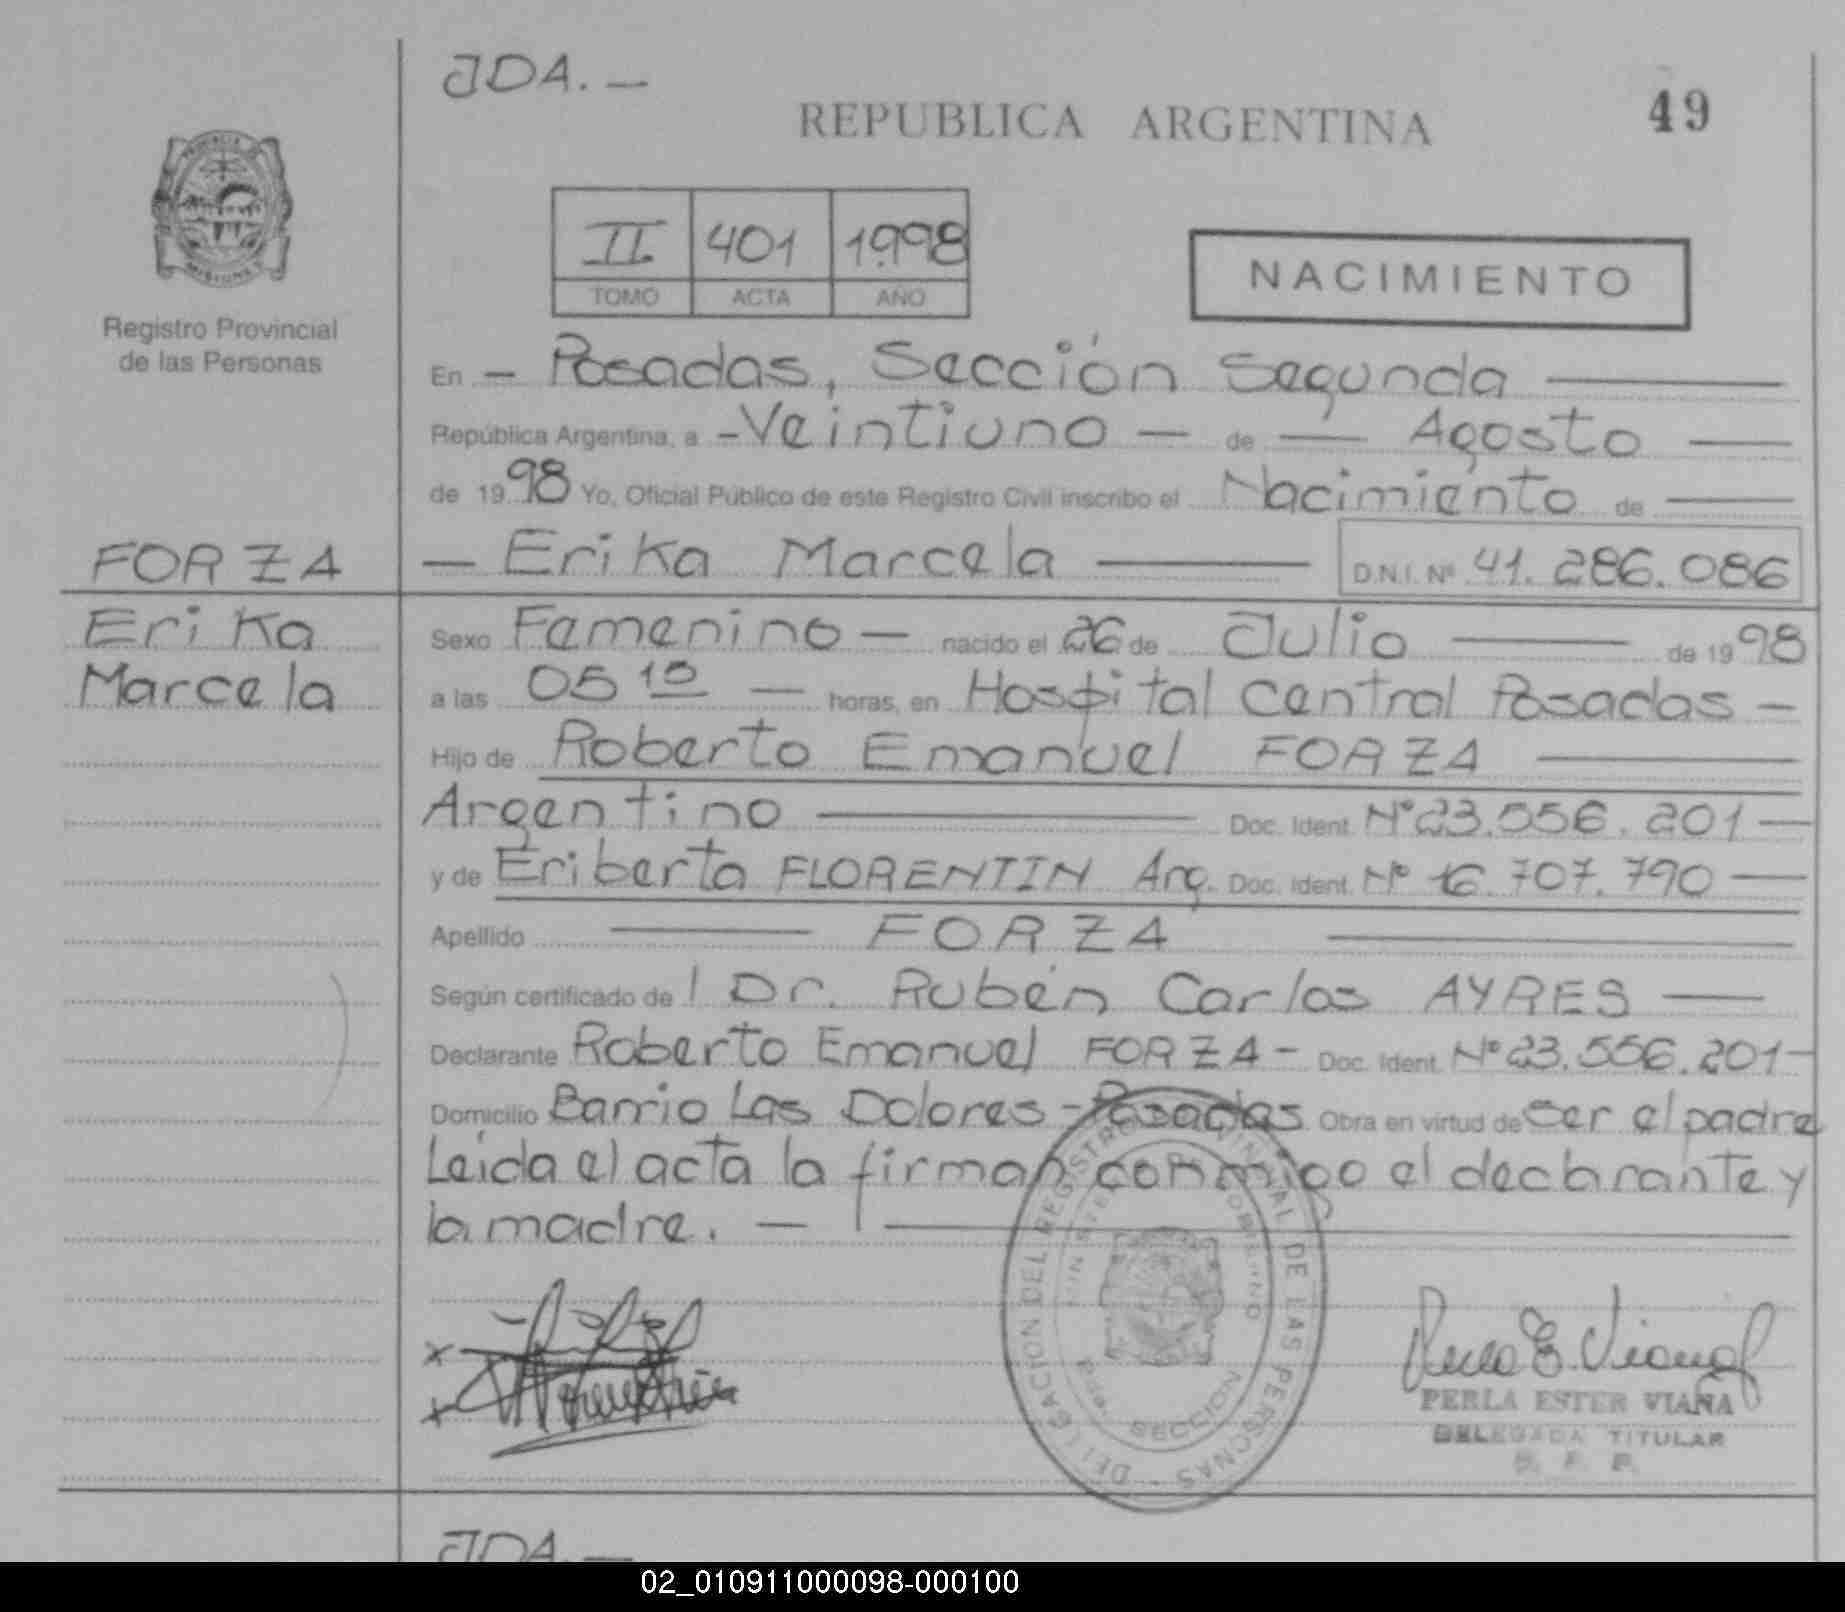 JDA. —
REPUBLICA ARGENTINA
49
PROVINCIA DE
MISIONES
Registro Provincial
de las Personas
II 401 1998
TOMO ACTA AÑO
NACIMIENTO
En — Posadas, Sección Segunda —
República Argentina, a - Veintiuno — de — Agosto —
de 1998 Yo, Oficial Público de este Registro Civil inscribo el Nacimiento de —
FORZA
Erika
Marcela
— Erika Marcela — D.N.I. Nº 41.286.086
Sexo Femenino — nacido el 26 de Julio — de 1998
a las 05 15 — horas, en Hospital Central Posadas —
Hijo de Roberto Emanuel FORZA —
Argentino — Doc. Ident. Nº 23.556.201 —
y de Eriberta FLORENTIN Arg. Doc. Ident. Nº 16.707.790 —
Apellido — FORZA —
Según certificado de l Dr. Rubén Carlos AYRES —
Declarante Roberto Emanuel FORZA - Doc. Ident. Nº 23.556.201 -
Domicilio Barrio Las Dolores - Posadas. Obra en virtud de ser el padre
Leida el acta la firman conmigo el declarante y
la madre. —
DELEGACION DEL REGISTRO PROVINCIAL DE LAS PERSONAS
SECCION
PERLA ESTER VIANA
DELEGADA TITULAR
JDA. —
02_010911000098-000100